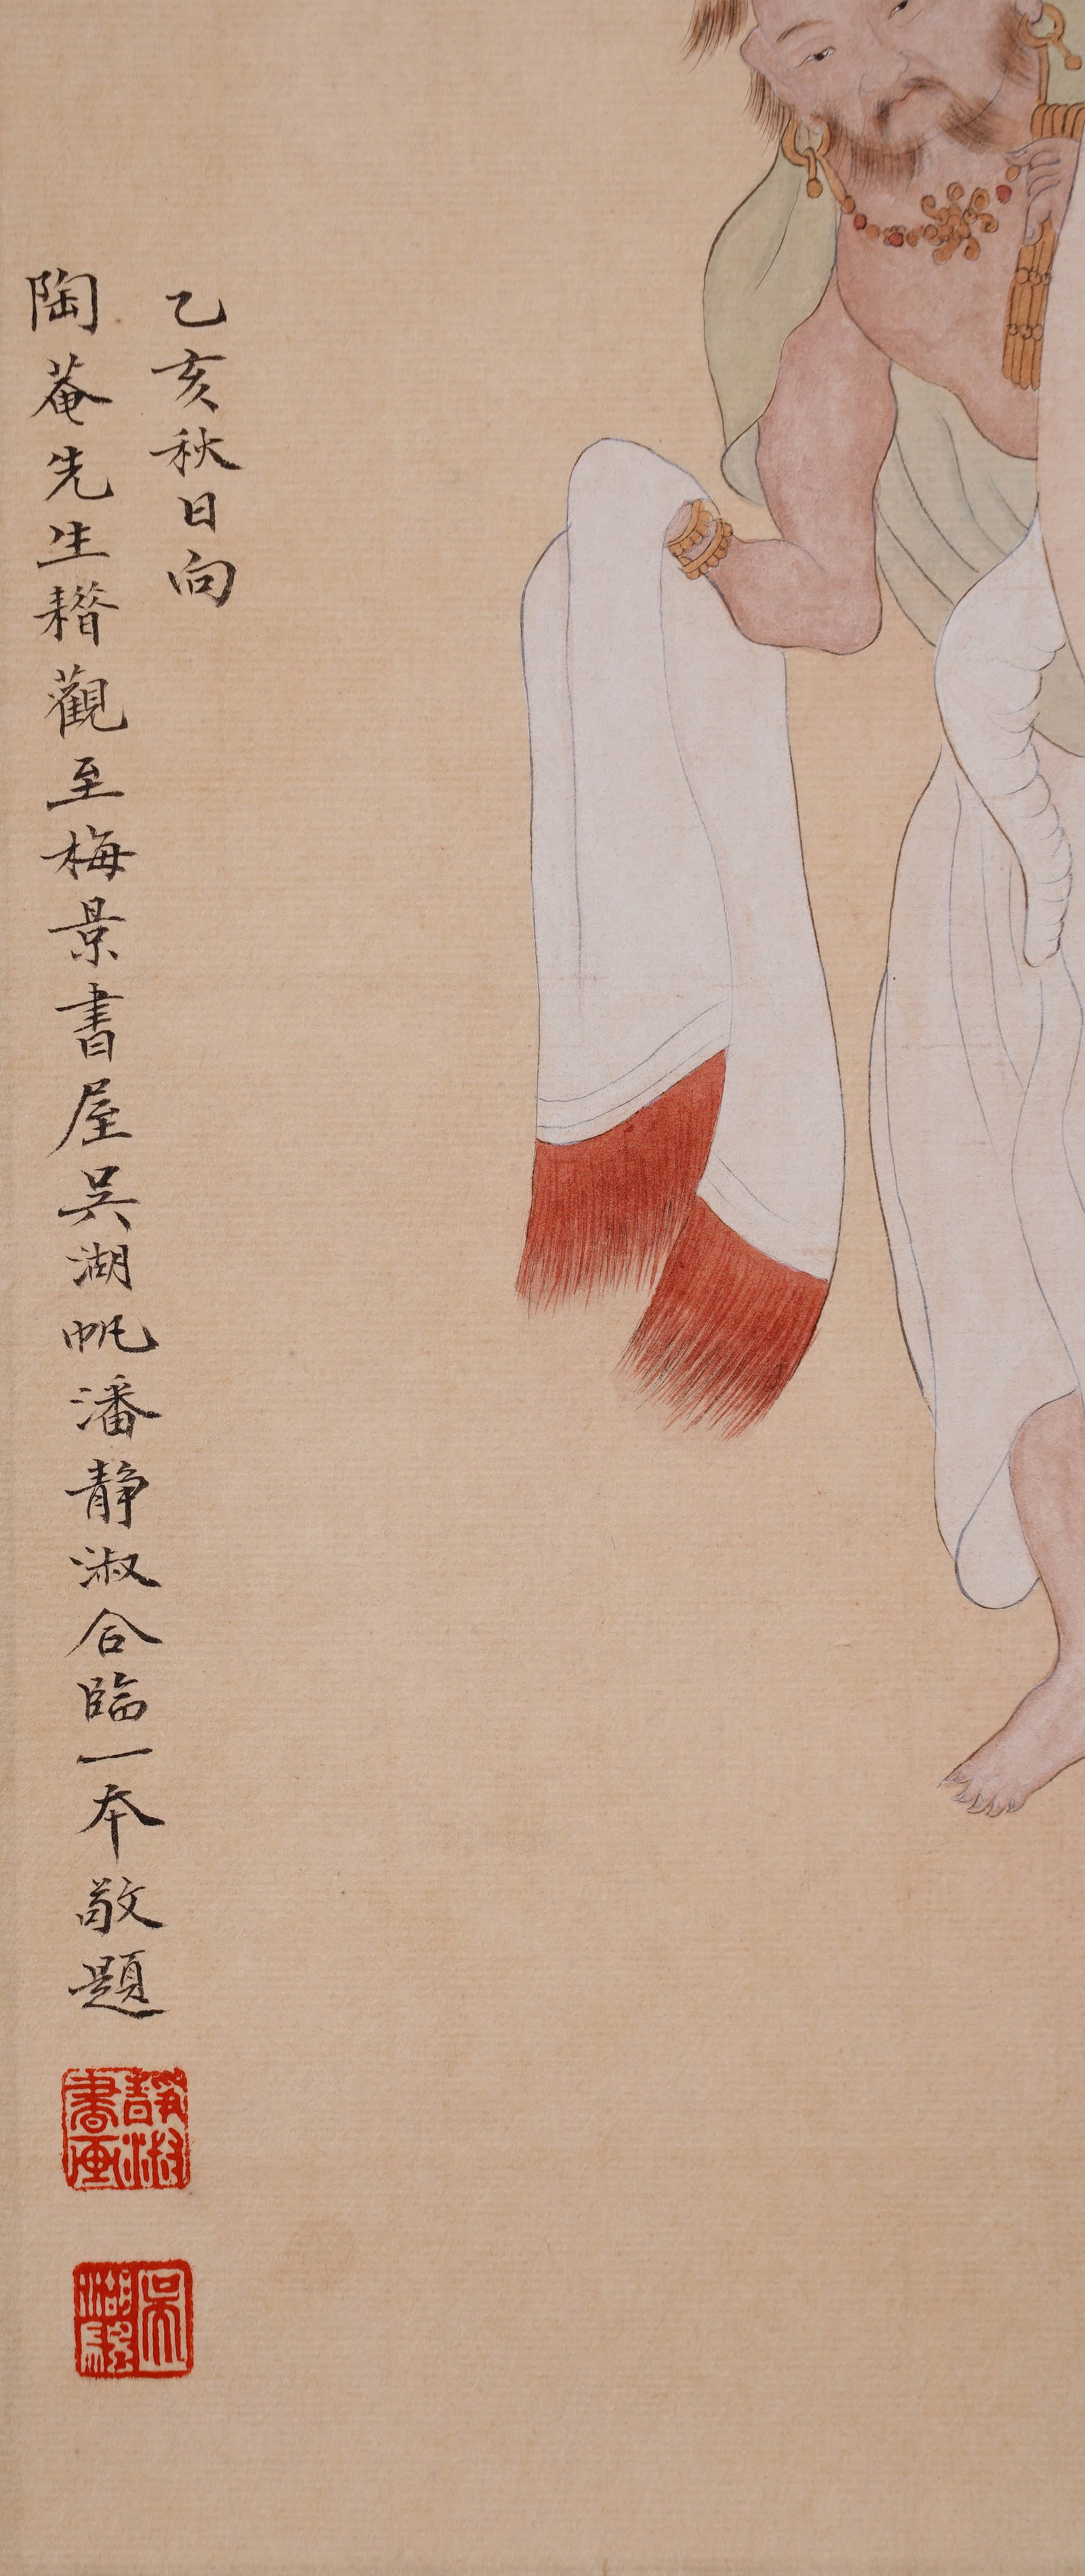 乙亥秋日向
陶菴先生耤觀至梅景書屋吳湖帆潘静淑合臨一本敬題
靜淑書画
吳湖驪